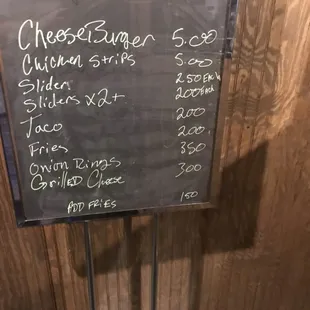 CheeseBurger 5.00
Chicken strips 5.00
Slider 250 Each
Sliders x2+ 200 Each
Taco 200
Fries 200
Onion Rings 350
Grilled Cheese 300
ADD FRIES 150